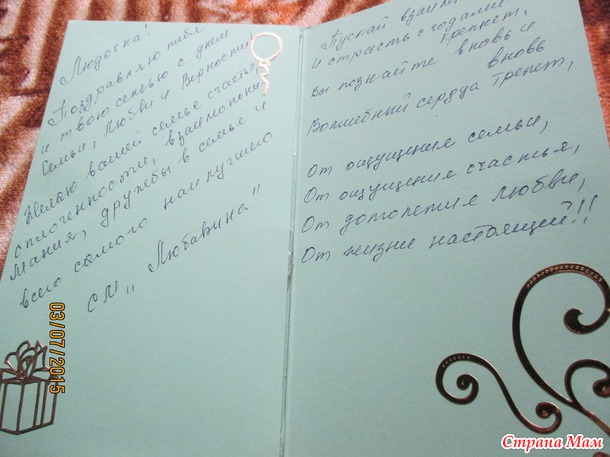 Людочка!
Поздравляю тебя
и твою семью с днём
Семьи, Любви и Верности!
Желаю вашей семье счастья,
сплоченности, взаимопони
мания, дружбы в семье и
всего самого наилучшего
см,, Любавина"
Пускай взаим
и страсть с годами
крепнет,
Вы познайте вновь и
вновь
Волшебный сердца трепет,
От ощущения семьи,
От ощущения счастья,
От долголетия любви,
От жизни настоящей!!!
03/07/2015
Страна Мам